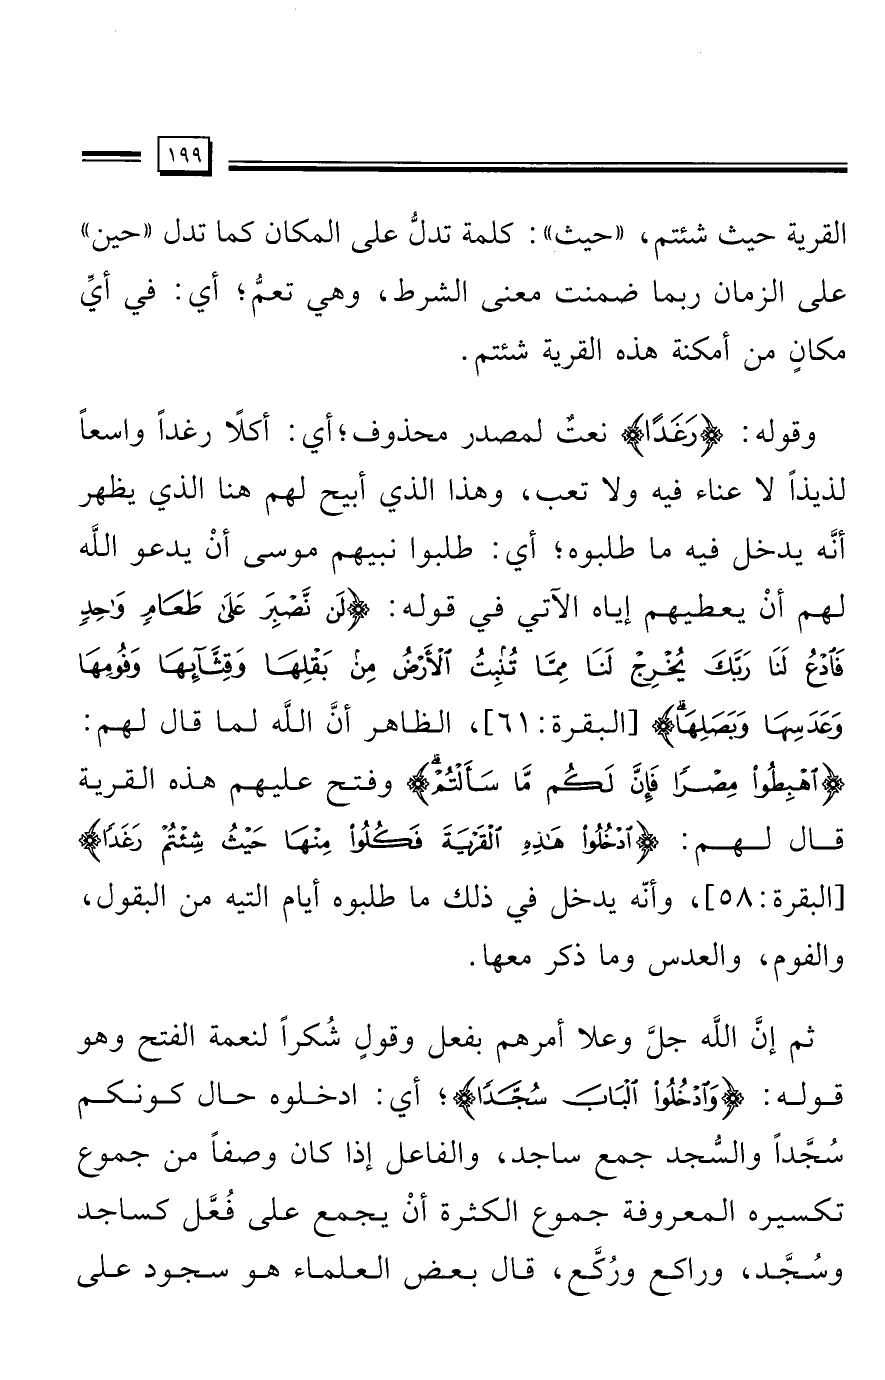 ١٩٩
القرية حيث شئتم، «حيث»: كلمة تدلُّ على المكان كما تدل «حين»
على الزمان ربما ضمنت معنى الشرط، وهي تعمُّ؛ أي: في أيِّ
مكانٍ من أمكنة هذه القرية شئتم.
وقوله: ﴿رَغَدًا﴾ نعتٌ لمصدر محذوف؛أي: أكلًا رغداً واسعاً
لذيذاً لا عناء فيه ولا تعب، وهذا الذي أبيح لهم هنا الذي يظهر
أنَّه يدخل فيه ما طلبوه؛ أي: طلبوا نبيهم موسى أنْ يدعو اللَّه
لهم أنْ يعطيهم إياه الآتي في قوله: ﴿لَن نَّصْبِرَ عَلَىٰ طَعَامٍ وَٰحِدٍ
فَٱدْعُ لَنَا رَبَّكَ يُخْرِجْ لَنَا مِمَّا تُنۢبِتُ ٱلْأَرْضُ مِنۢ بَقْلِهَا وَقِثَّآئِهَا وَفُومِهَا
وَعَدَسِهَا وَبَصَلِهَاۖ﴾ [البقرة:٦١]، الظاهر أنَّ اللَّه لما قال لهم:
﴿ٱهْبِطُوا۟ مِصْرًا فَإِنَّ لَكُم مَّا سَأَلْتُمْۗ﴾ وفتح عليهم هذه القرية
قال لهم: ﴿ٱدْخُلُوا۟ هَٰذِهِ ٱلْقَرْيَةَ فَكُلُوا۟ مِنْهَا حَيْثُ شِئْتُمْ رَغَدًا﴾
[البقرة:٥٨]، وأنّه يدخل في ذلك ما طلبوه أيام التيه من البقول،
والفوم، والعدس وما ذكر معها.
ثم إنَّ اللَّه جلَّ وعلا أمرهم بفعل وقولٍ شُكراً لنعمة الفتح وهو
قوله: ﴿وَٱدْخُلُوا۟ ٱلْبَابَ سُجَّدًا﴾؛ أي: ادخلوه حال كونكم
سُجَّداً والسُّجد جمع ساجد، والفاعل إذا كان وصفاً من جموع
تكسيره المعروفة جموع الكثرة أنْ يجمع على فُعَّل كساجد
وسُجَّد، وراكع ورُكَّع، قال بعض العلماء هو سجود على